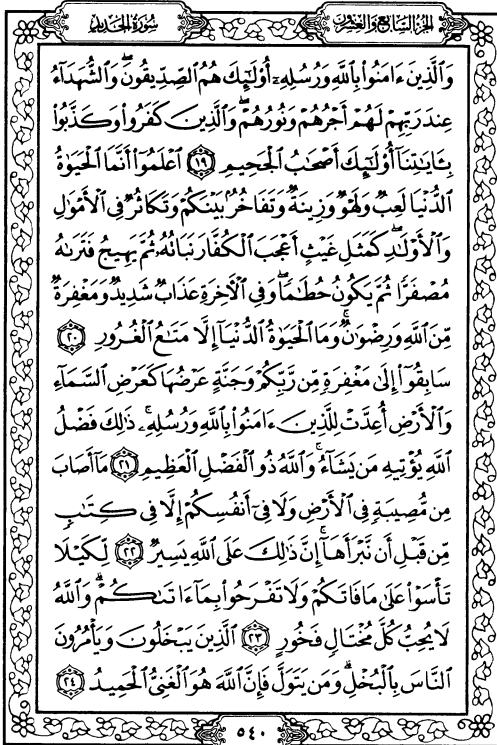 سُورَةُ الحَدِيدِ
الجُزءُ السَّابِعُ وَالعِشْرُونَ
وَالَّذِينَ ءَامَنُوا۟ بِٱللَّهِ وَرُسُلِهِۦٓ أُو۟لَٰٓئِكَ هُمُ ٱلصِّدِّيقُونَ ۖ وَٱلشُّهَدَآءُ
عِندَ رَبِّهِمْ لَهُمْ أَجْرُهُمْ وَنُورُهُمْ ۖ وَٱلَّذِينَ كَفَرُوا۟ وَكَذَّبُوا۟
بِـَٔايَٰتِنَآ أُو۟لَٰٓئِكَ أَصْحَٰبُ ٱلْجَحِيمِ ١٩ ٱعْلَمُوٓا۟ أَنَّمَا ٱلْحَيَوٰةُ
ٱلدُّنْيَا لَعِبٌ وَلَهْوٌ وَزِينَةٌ وَتَفَاخُرٌۢ بَيْنَكُمْ وَتَكَاثُرٌ فِى ٱلْأَمْوَٰلِ
وَٱلْأَوْلَٰدِ ۖ كَمَثَلِ غَيْثٍ أَعْجَبَ ٱلْكُفَّارَ نَبَاتُهُۥ ثُمَّ يَهِيجُ فَتَرَىٰهُ
مُصْفَرًّا ثُمَّ يَكُونُ حُطَٰمًا ۖ وَفِى ٱلْءَاخِرَةِ عَذَابٌ شَدِيدٌ وَمَغْفِرَةٌ
مِّنَ ٱللَّهِ وَرِضْوَٰنٌ ۚ وَمَا ٱلْحَيَوٰةُ ٱلدُّنْيَآ إِلَّا مَتَٰعُ ٱلْغُرُورِ ٢٠
سَابِقُوٓا۟ إِلَىٰ مَغْفِرَةٍ مِّن رَّبِّكُمْ وَجَنَّةٍ عَرْضُهَا كَعَرْضِ ٱلسَّمَآءِ
وَٱلْأَرْضِ أُعِدَّتْ لِلَّذِينَ ءَامَنُوا۟ بِٱللَّهِ وَرُسُلِهِۦ ۚ ذَٰلِكَ فَضْلُ
ٱللَّهِ يُؤْتِيهِ مَن يَشَآءُ ۚ وَٱللَّهُ ذُو ٱلْفَضْلِ ٱلْعَظِيمِ ٢١ مَآ أَصَابَ
مِن مُّصِيبَةٍ فِى ٱلْأَرْضِ وَلَا فِىٓ أَنفُسِكُمْ إِلَّا فِى كِتَٰبٍ
مِّن قَبْلِ أَن نَّبْرَأَهَآ ۚ إِنَّ ذَٰلِكَ عَلَى ٱللَّهِ يَسِيرٌ ٢٢ لِّكَيْلَا
تَأْسَوْا۟ عَلَىٰ مَا فَاتَكُمْ وَلَا تَفْرَحُوا۟ بِمَآ ءَاتَىٰكُمْ ۗ وَٱللَّهُ
لَا يُحِبُّ كُلَّ مُخْتَالٍ فَخُورٍ ٢٣ ٱلَّذِينَ يَبْخَلُونَ وَيَأْمُرُونَ
ٱلنَّاسَ بِٱلْبُخْلِ ۗ وَمَن يَتَوَلَّ فَإِنَّ ٱللَّهَ هُوَ ٱلْغَنِىُّ ٱلْحَمِيدُ ٢٤
٥٤٠